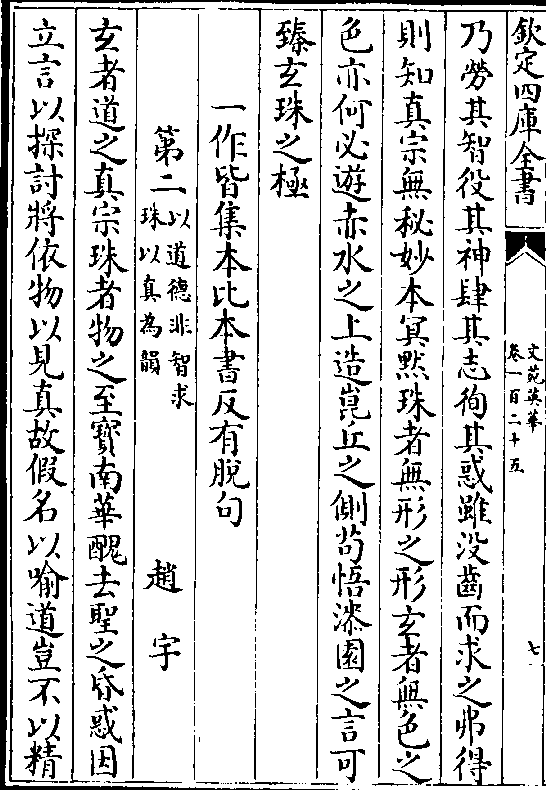 欽定四庫全書
文苑英華
卷一百二十五
七
乃勞其智役其神肆其志徇其惑雖没齒而求之弗得
則知真宗無秘妙本冥黙珠者無形之形玄者無色之
色亦何必遊赤水之上造崑丘之側茍悟漆園之言可
臻玄珠之極
一作皆集本比本書反有脱句
第二
以道德非智求
珠以真為韻
趙宇
玄者道之真宗珠者物之至寶南華醜去聖之昏惑因
立言以探討將依物以見真故假名以喻道豈不以精